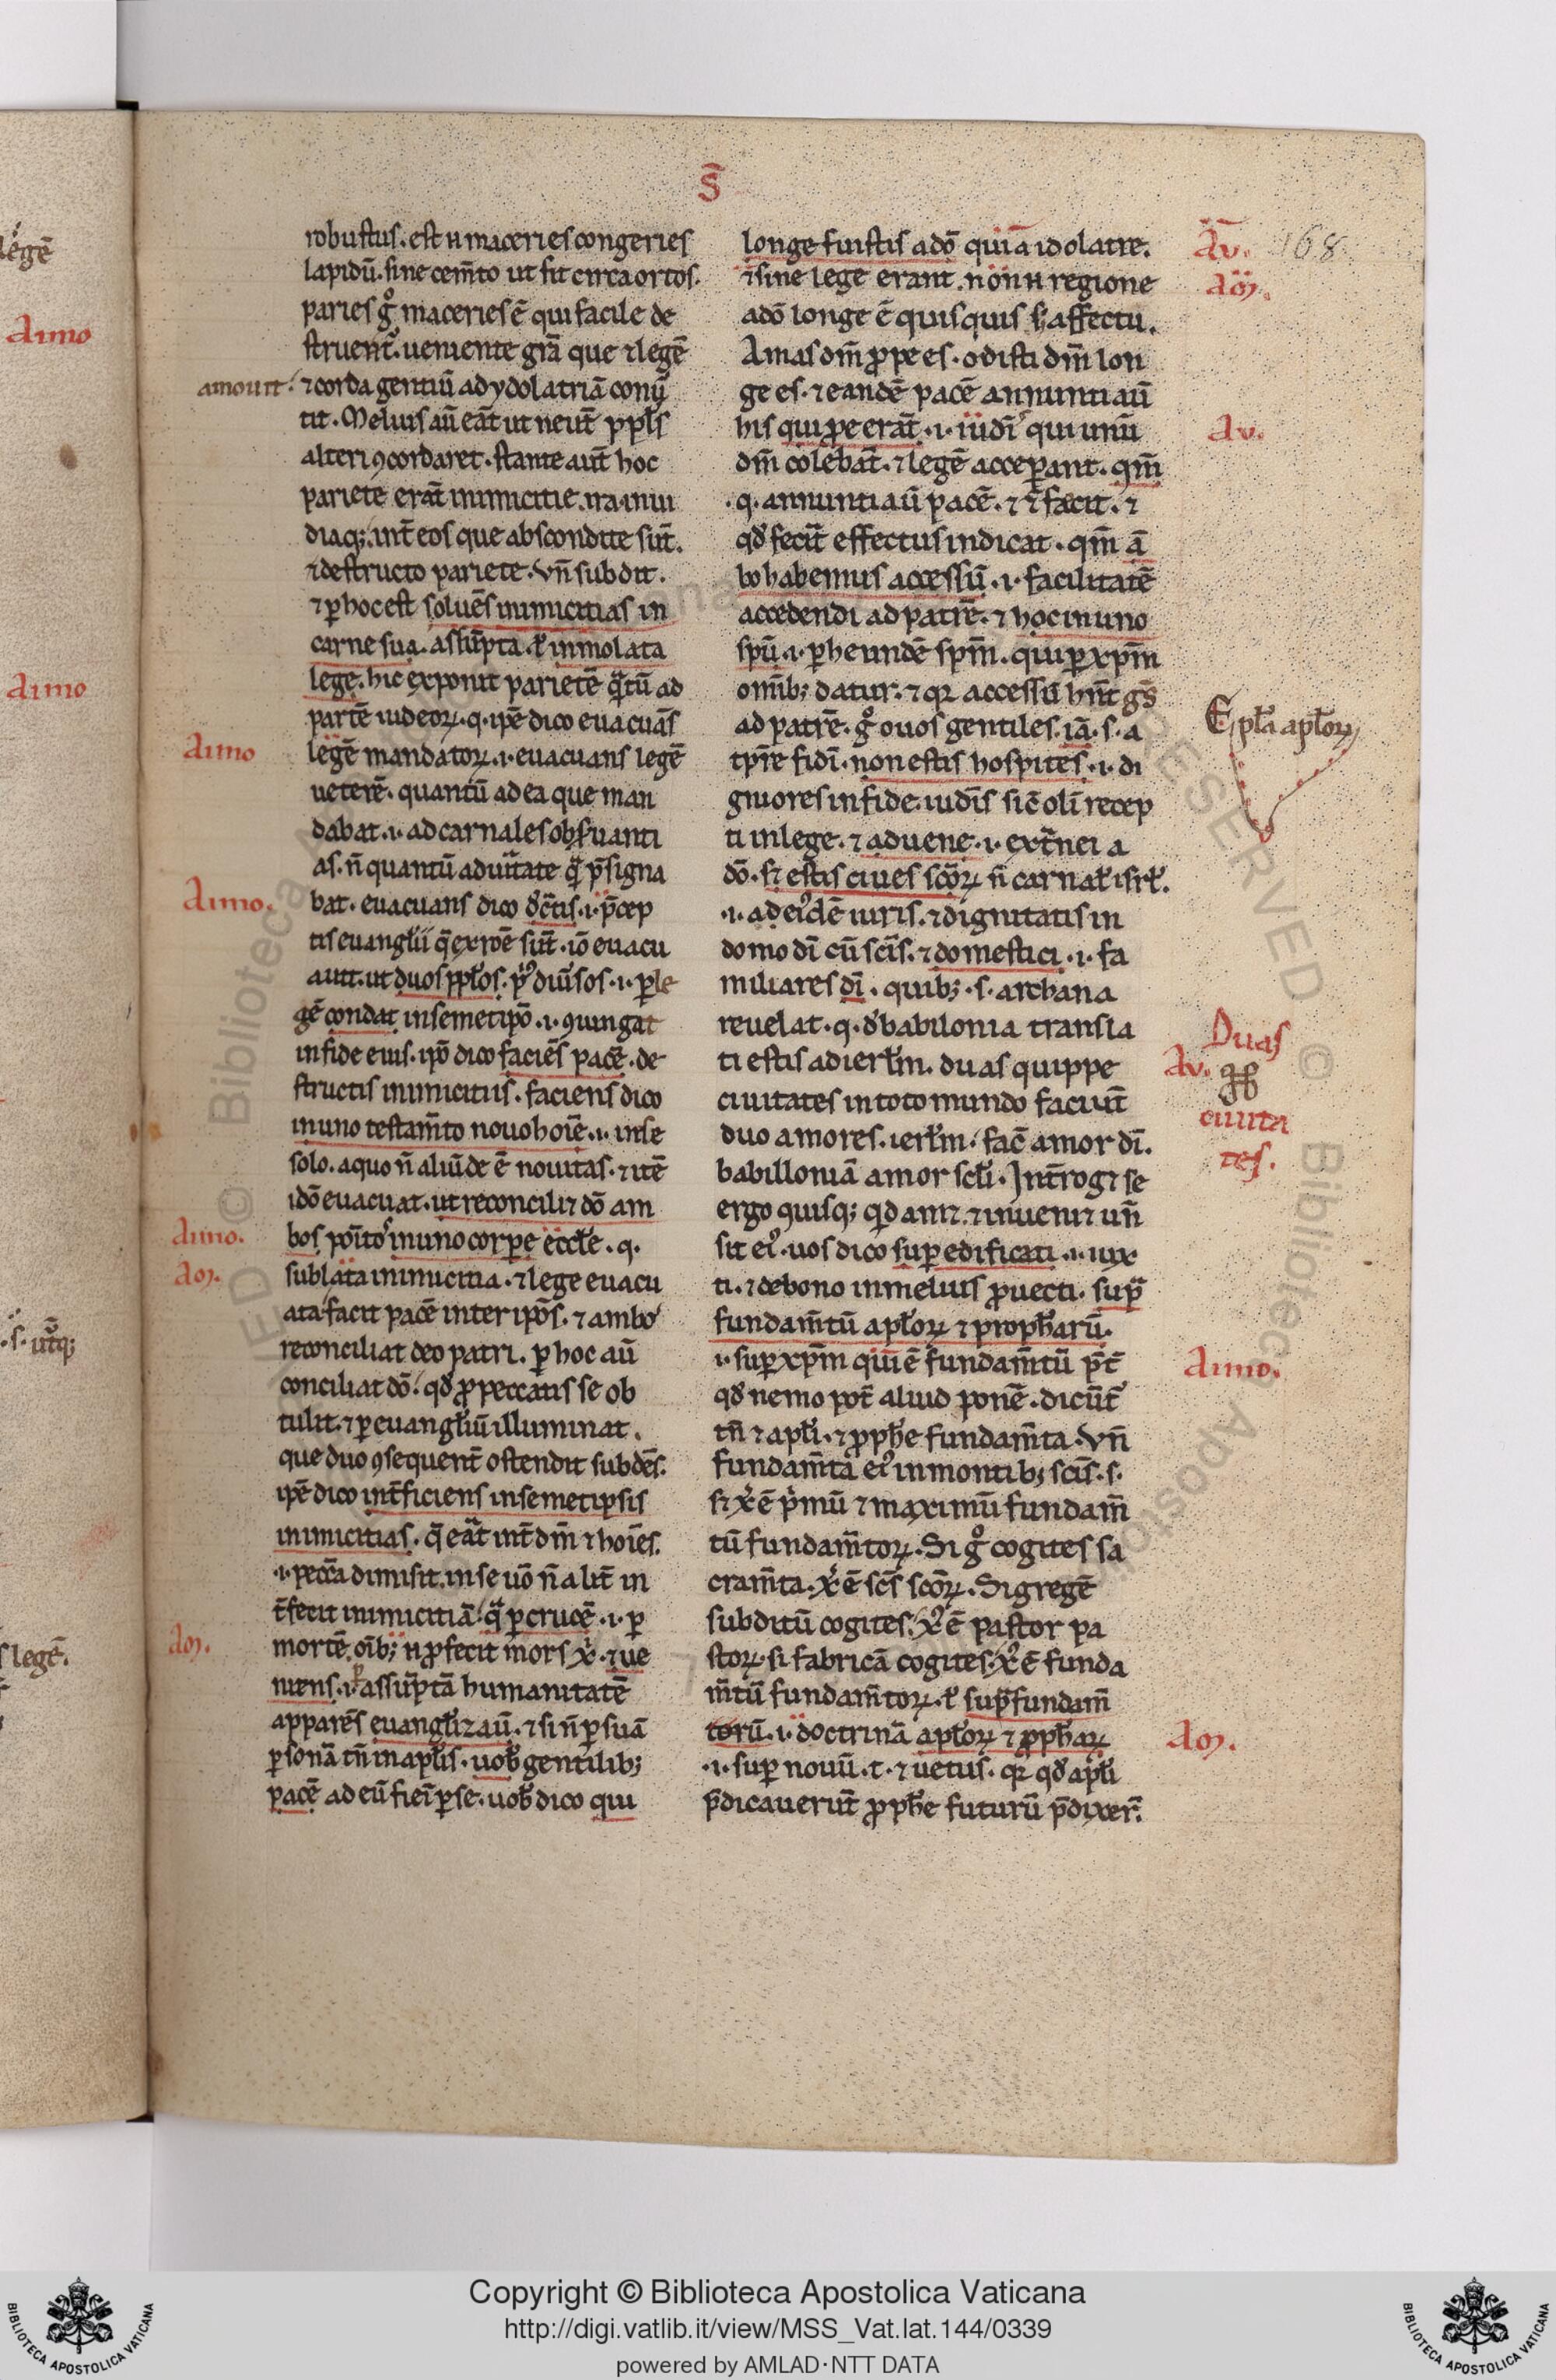 S̄
168
robustus. est n̄ maceries congeries
lapidū. sine cem̄to ut fit circa ortos.
paries gͦ maceries ē qui facile de
struent᷑. ueniente gr̄a que ⁊ legē
amouit
⁊ corda gentiū ad ydolatriā conū
tit. Melius aū eāt ut neut̄ ppl̄s
alteri ꝯcordaret. stante aut̄ hoc
pariete erāt inimicitie. ira. inui
diaqꝫ. int̄ eos que abscondite sūt.
⁊ destructo pariete. Vn̄ subdit.
⁊ ꝑ hoc est soluēs inimicitias in
carne sua. assūpta ꝉ inmolata
lege. hic exponit parietē q̄tū ad
partē iudeoꝝ. q. ip̄e dico euacuās
legē mandatoꝝ .i. euacuans legē
ueterē. quantū ad ea que man
dabat .i. ad carnales obseruanti
as. n̄ quantū ad uītate q̄ p̄signa
bat. euacuans dico dc̄tis .i. p̄cep
tis euanglii q̄ ex roē sūt. iō euacu
auit. ut duos ppl̄os. pͥꝰ diuisos .i. ꝑ le
gē condat in semetip̄o .i. ꝯiungat
in fide eius. ip̄o dico faciēs pacē. de
structis inimicitiis. faciens dico
in uno testam̄to nouo hoīe .i. in se
solo. a quo n̄ aliūde ē nouitas. ⁊ itē
idō euacuat. ut reconciliet dō am
bos poīto in uno corpe eccl̄e. q.
sublata inimicitia. ⁊ lege euacu
ata facit pacē inter ip̄os. ⁊ ambo
reconciliat deo patri. ꝑ hoc aū
conciliat dō. qd̄ ꝓ peccatis se ob
tulit. ⁊ ꝑ euangl̄iū illuminat.
que duo ꝯsequent̄ ostendit subdēs.
ip̄e dico int̄ficiens in semetipsis
inimicitias. q̄ eāt int̄ dm̄ ⁊ hoīes.
.i. pecc̄a dimisit. in se uō n̄ alit̄ in
t̄fecit inimicitiā. q̄ ꝑ crucē .i. ꝑ
mortē oīb; n̄ ꝓfecit mors xͥ. ⁊ ue
niens .i. ꝑ assūptā humanitatē
apparēs euangl̄izaū. ⁊ si n̄ ꝑ suā
ꝑsonā tn̄ in apl̄is. uob̄ gentilib;
pacē ad eū fieī ꝑ se. uob̄ dico qui
longe fuistis a dō quia idolatre.
⁊ sine lege erant. non n̄ regione
a dō longe ē quisquis s; affectu.
Amas dm̄ ꝓpe es. odisti dm̄ lon
ge es. ⁊ eandē pacē annuntiaū
his qui ꝓpe erāt .i. iudī qui unū
dm̄ colebāt. ⁊ legē acceperant. qm̄
.q. annuntiaū pacē. ⁊ ⁊ fecit. ⁊
qd̄ fecīt effectus indicat. qm̄ ā
bo habemus accessū .i. facilitatē
accedendi ad patrē. ⁊ hoc in uno
spū .i. ꝑ heundē spm̄. qui ꝑ xpm̄
omīb; datur. ⁊ qꝛ accessū hn̄t gs̄
ad patrē. gͦ o uos gentiles. iā .s. a
tp̄re fidī. non estis hospites .i. di
gniores in fide. iudīs sic̄ olī recep
ti in lege. ⁊ aduene .i. ext̄nei a
dō. s; estis ciues scōꝝ n̄ carnal̄ isrl̄.
.i. ad eiꝰdē iuris. ⁊ dignitatis in
domo dī cū scīs. ⁊ domestici .i. fa
miliares dī. quib; .s. archana
reuelat. q. d̄ babilonia transla
ti estis ad ierl̄m. duas quippe
ciuitates in toto mundo faciūt
duo amores. ierl̄m. fac̄ amor dī.
babilloniā amor scl̄i. Int̄roget se
ergo ꝗuisq; qd amet. ⁊ inueniet un̄
sit eiꝰ. uos dico superedificati .i. iux
ti. ⁊ de bono in melius ꝓuecti. sup̄
fundam̄tū apl̄oꝝ ⁊ prophetarū.
.i. super xpm̄ qui ē fundam̄tū p̄t̄
qd̄ nemo pot̄ aliud ponē. dicūt̄
tn̄ ⁊ apl̄i. ⁊ ꝓph̄e fundam̄ta. Vn̄
fundam̄ta eiꝰ in montib; scīs. s.
s; xͥ ē pͥmū ⁊ maximū fundam̄
tū fundam̄toꝝ. Si gͦ cogites sa
cram̄ta. xͥ ē scs̄ scōꝝ. Si gregē
subditū cogites. xͥ ē pastor pa
stoꝝ. si fabricā cogites. xͥ ē funda
m̄tū fundam̄toꝝ. ꝉ sup̄ fundam̄
torū .i. doctrinā apl̄oꝝ ⁊ ꝓph̄aꝝ
.i. super nouū .t. ⁊ uetus. qꝛ qd̄ apl̄i
p̄dicauerūt ꝓph̄e futurū p̄dixer̄.
Aimo
Aimo.
Aimo.
Am.
Am.
Av.
Am.
Av.
Epl̄a apl̄oꝝ
Duas
Av.
ciuita
tes.
Aimo.
Am.
legē
Aimo
Aimo
.s. ut̄q;
legē.
Copyright © Biblioteca Apostolica Vaticana
http://digi.vatlib.it/view/MSS_Vat.lat.144/0339
powered by AMLAD·NTT DATA
BIBLIOTECA APOSTOLICA VATICANA
BIBLIOTECA APOSTOLICA VATICANA